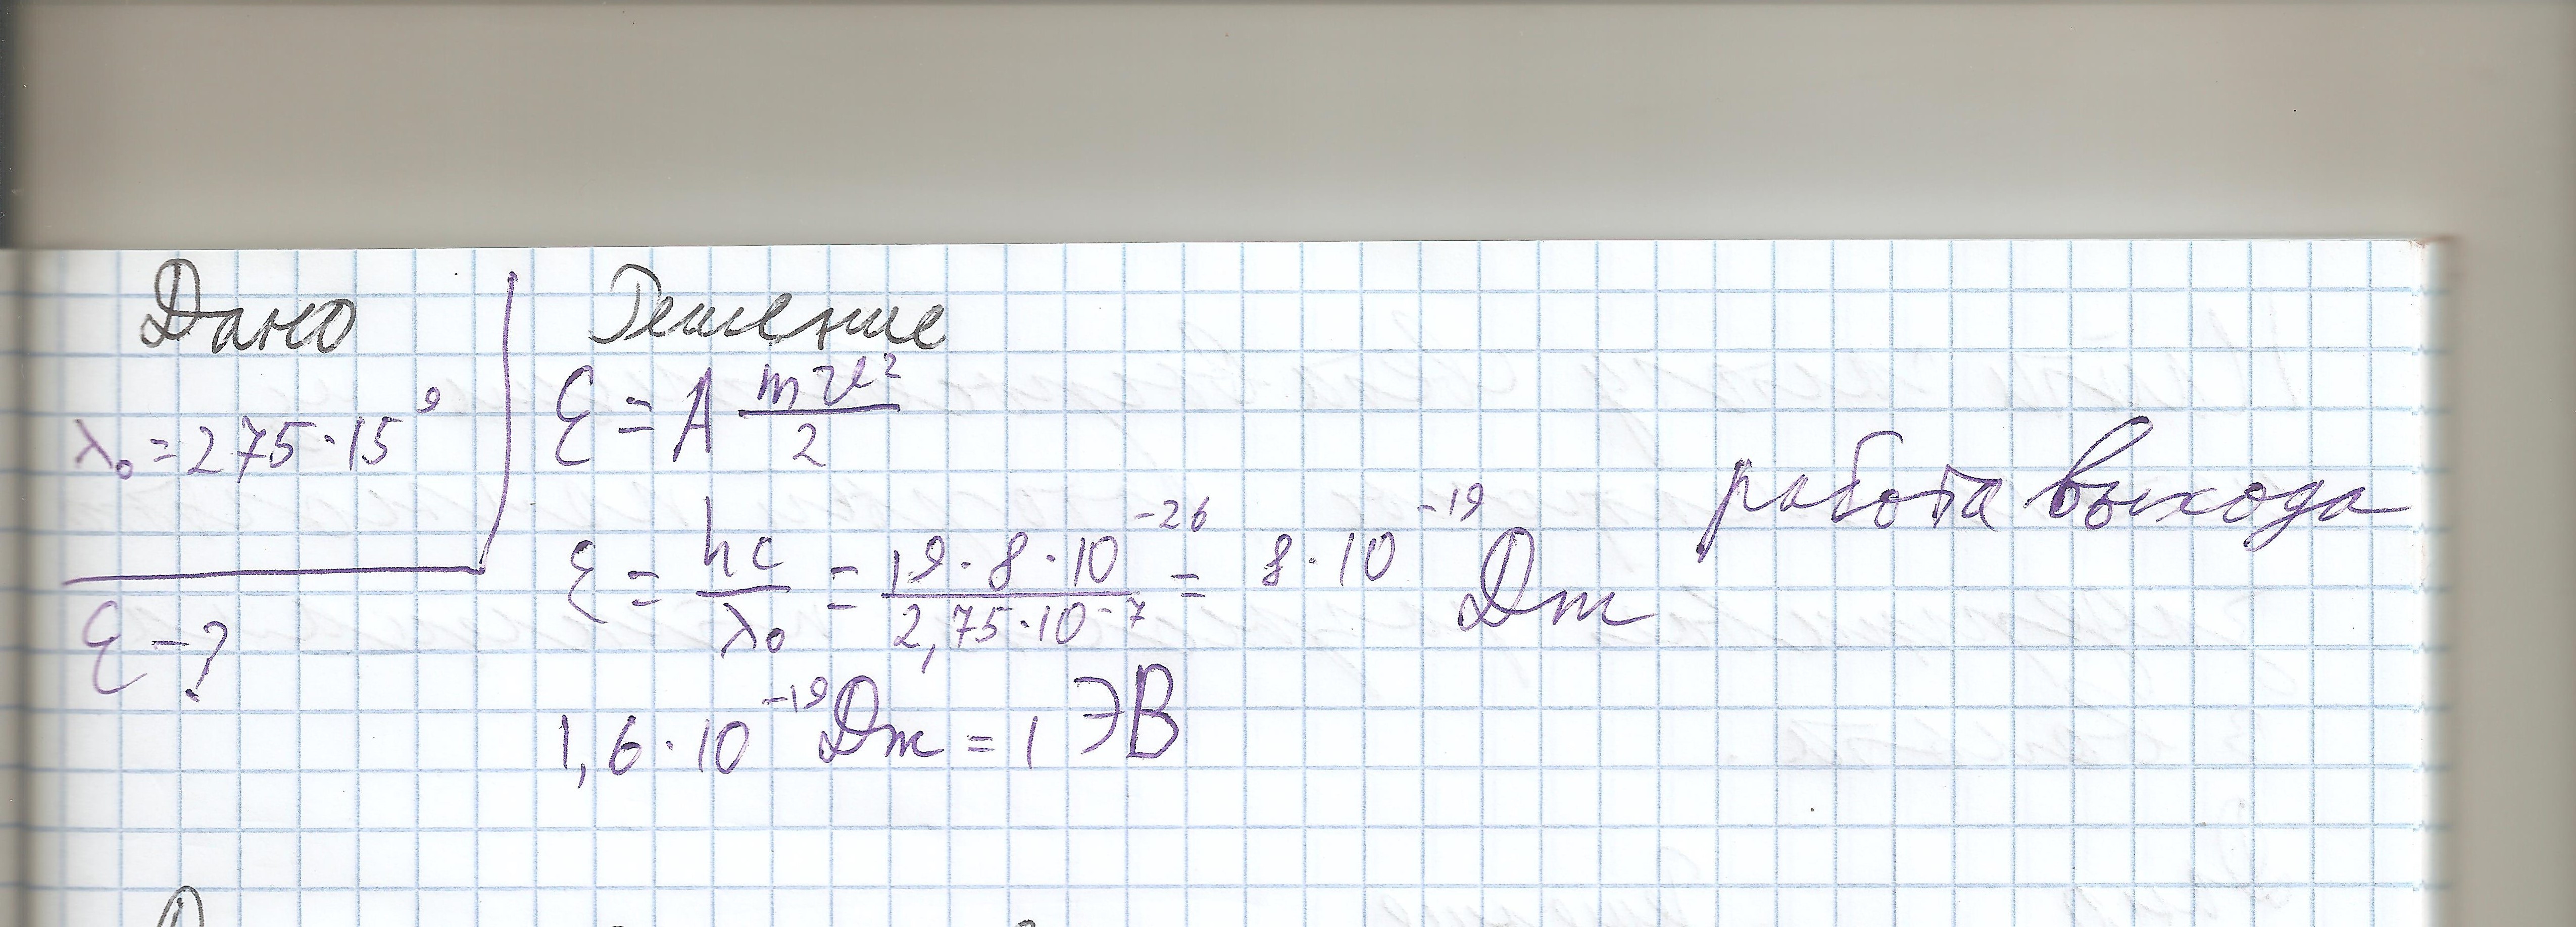 Дано
λ₀ = 275·15⁹
ε – ?
Решение
ε = A mv²/2
ε = hc/λ₀ = 19·8·10⁻²⁶/2,75·10⁻⁷ = 8·10⁻¹⁹ Дж
работа выхода
1,6·10⁻¹⁹ Дж = 1 ЭВ